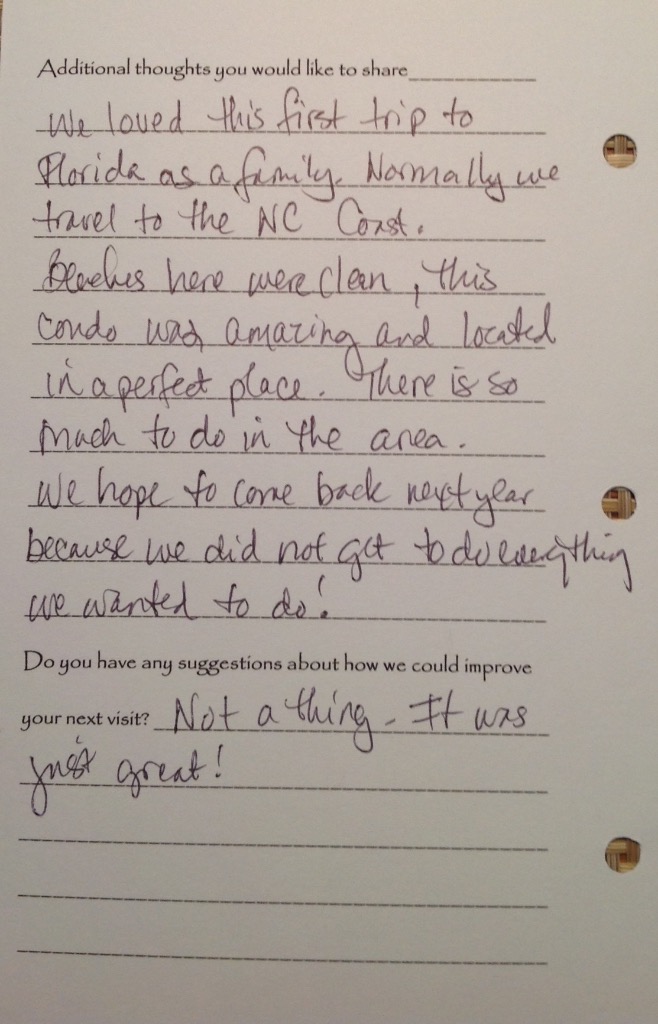 Additional thoughts you would like to share
We loved this first trip to
Florida as a family. Normally we
travel to the NC Coast.
Beaches here were clean, this
condo was amazing and located
in a perfect place. There is so
much to do in the area.
We hope to come back next year
because we did not get to do everything
we wanted to do!
Do you have any suggestions about how we could improve
your next visit? Not a thing. It was
just great!